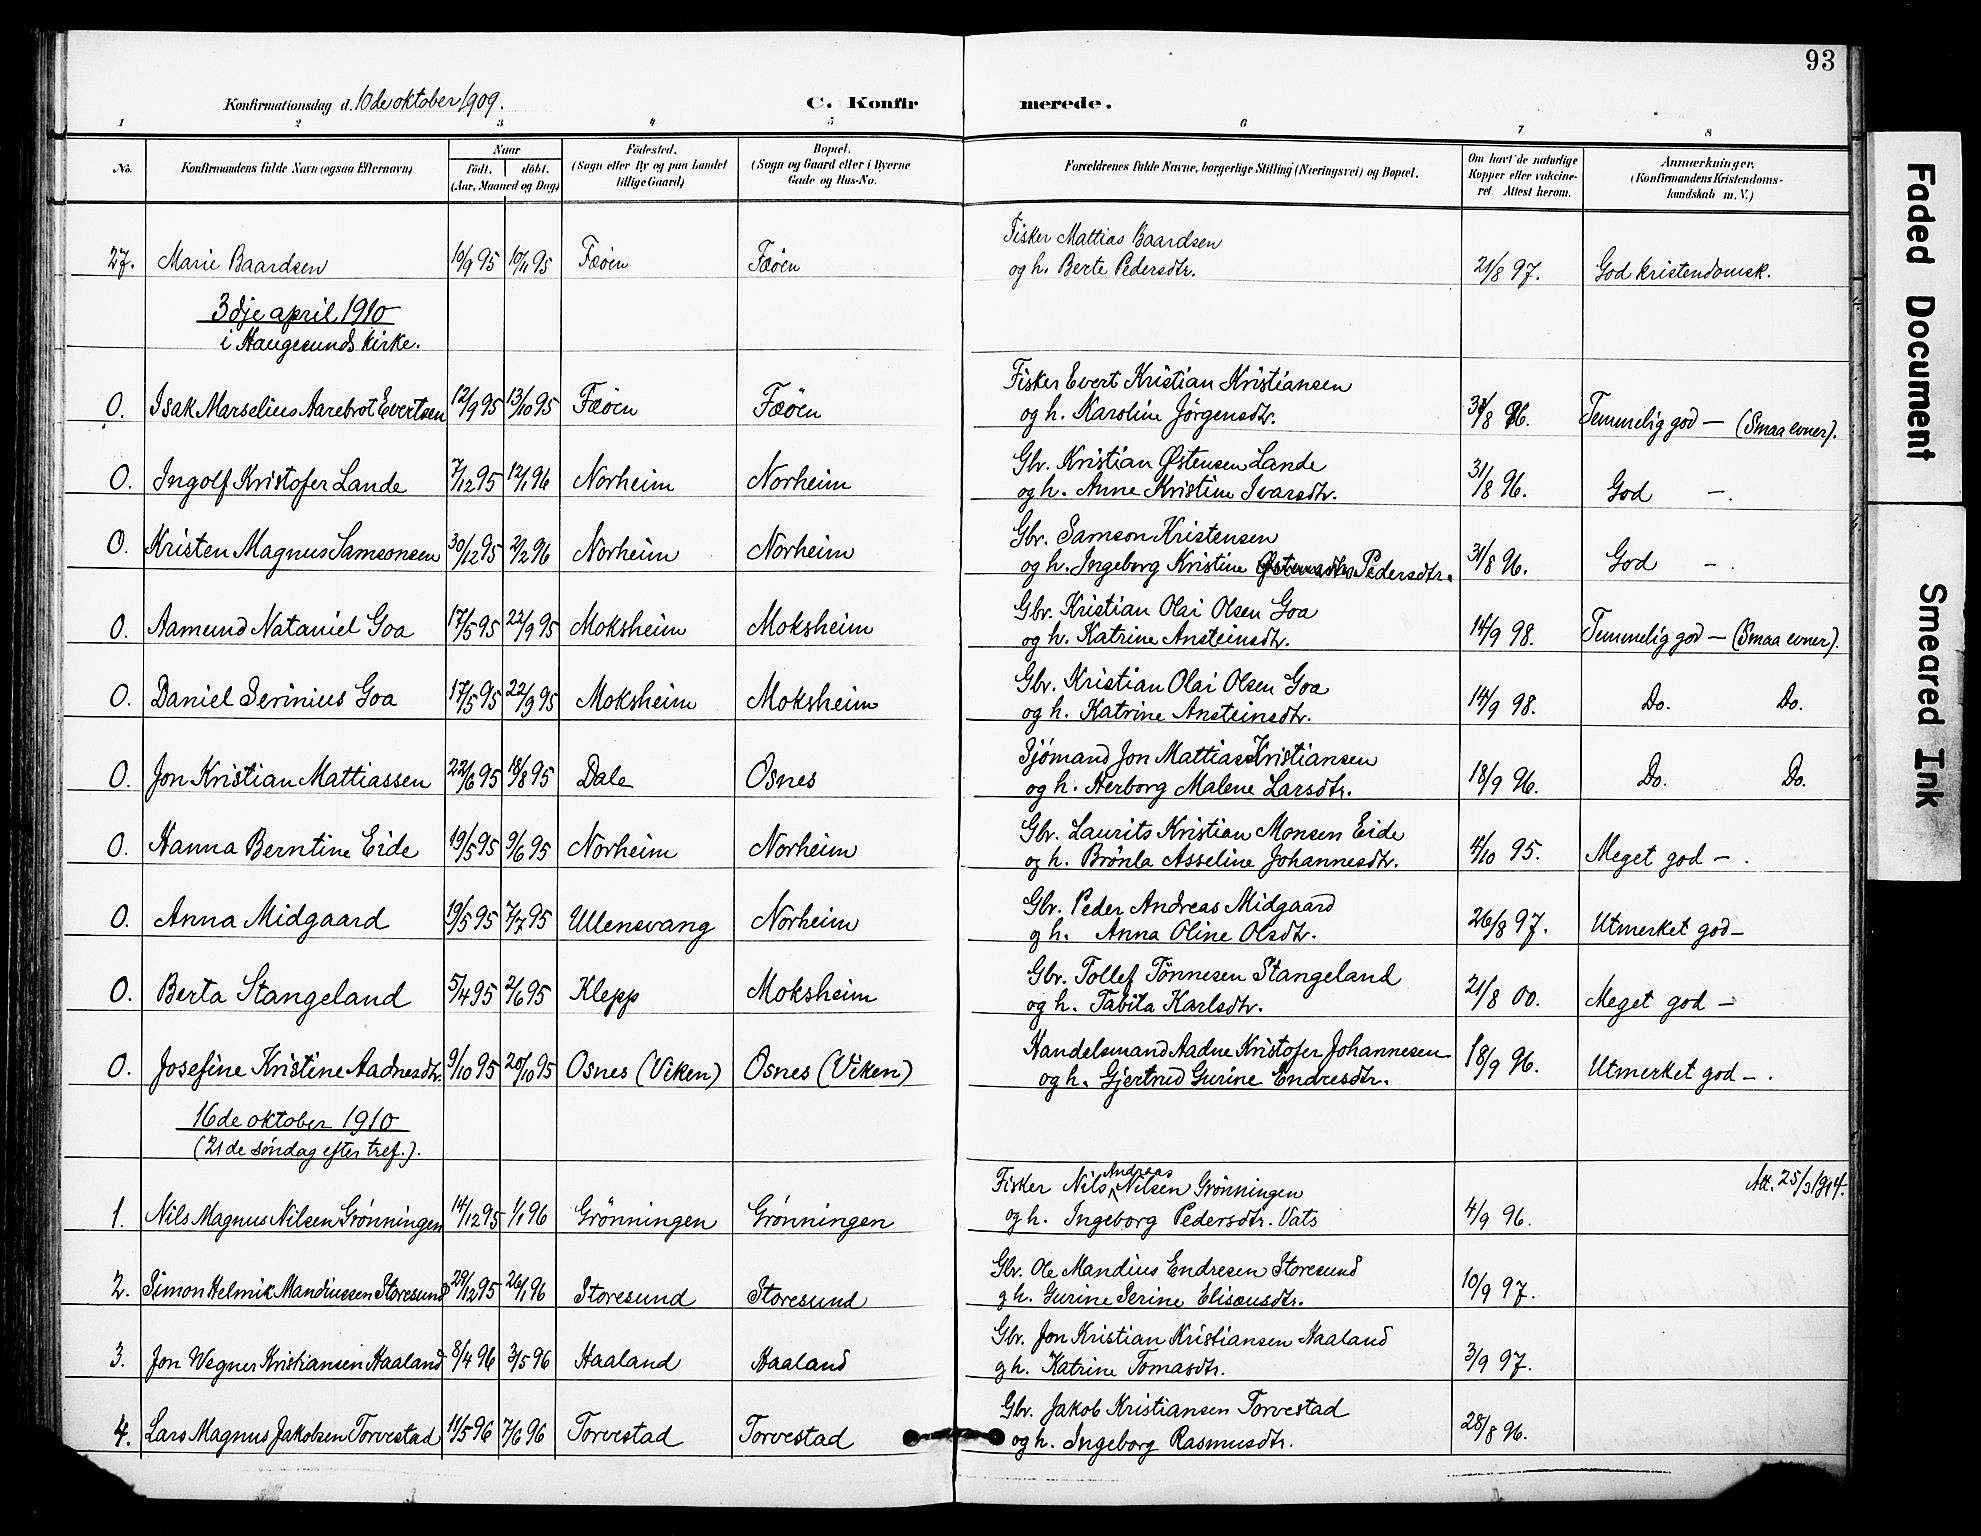 93
Konfirmationsdag d. 10de oktober 1909.
C. Konfirmerede.
1 2 3 4 5 6 7 8
No.
Konfirmandens fulde Navn (ogsaa Efternavn)
Naar
født. døbt.
(Aar, Maaned og Dag)
Fødested.
(Sogn eller By og paa Landet
tillige Gaard)
Bopæl.
(Sogn og Gaard eller i Byerne
Gade og Hus-No.
Forældrenes fulde Navne, borgerlige Stilling (Næringsvei) og Bopæl.
Om havt de naturlige
Kopper eller vakcine-
ret. Attest herom.
Anmærkninger.
(Konfirmandens Kristendoms-
kundskab m. V.)
Fisker Mattias Baardsen
27. Marie Baardsen 10/9 95 10/11 95 Fæøen Fæøen og h. Berte Pedersdtr. 21/8 97. God kristendomsk.
3dje april 1910
i Haugesunds kirke.
Fisker Evert Kristian Kristiansen
0. Isak Marselius Aarebrot Evertsen 12/9 95 13/10 95 Fæöen Fæöen og h. Karoline Jörgensdtr. 31/8 96. Temmelig god — (Smaa evner).
Gbr. Kristian Østensen Lande
0. Ingolf Kristofer Lande 7/12 95 12/1 96 Norheim Norheim og h. Anne Kristine Ivarsdtr. 31/8 96. God —.
Gbr. Samson Kristensen
0. Kristen Magnus Samsonsen 30/12 95 2/2 96 Norheim Norheim og h. Ingeborg Kristine Østensdtr. Pedersdtr. 31/8 96. God —.
Gbr. Kristian Olai Olsen Goa
0. Aamund Nataniel Goa 17/5 95 22/9 95 Moksheim Moksheim og h. Katrine Ansteinsdtr. 14/9 98. Temmelig god — (Smaa evner).
Gbr. Kristian Olai Olsen Goa
0. Daniel Serinius Goa 17/5 95 22/9 95 Moksheim Moksheim og h. Katrine Ansteinsdtr. 14/9 98. Do. Do.
Sjömand Jon Mattias Kristiansen
0. Jon Kristian Mattiassen 22/6 95 18/8 95 Dale Osnes og h. Herborg Malene Larsdtr. 18/9 96. Do. Do.
Gbr. Laurits Kristian Monsen Eide
0. Hanna Berntine Eide 19/5 95 9/6 95 Norheim Norheim og h. Brönla Asseline Johannesdtr. 4/10 95. Meget god —.
Gbr. Peder Andreas Midgaard
0. Anna Midgaard 19/5 95 7/7 95 Ullensvang Norheim og h. Anna Oline Olsdtr. 26/8 97. Utmerket god —
Gbr. Tollef Tönnesen Stangeland
0. Berta Stangeland 5/4 95 2/6 95 Klepp Moksheim og h. Tabita Karlsdtr. 21/8 00. Meget god —
Handelsmand Aadne Kristofer Johannesen
0. Josefine Kristine Aadnesdtr. 9/10 95 20/10 95 Osnes (Viken) Osnes (Viken) og h. Gjertrud Gurine Endresdtr. 18/9 96. Utmerket god —.
16de oktober 1910
(21de søndag efter tref.).
Fisker Nils Andreas Nilsen Grönningen Att. 25/3 1914.
1. Nils Magnus Nilsen Grönningen 14/12 95 1/1 96 Grönningen Grönningen og h. Ingeborg Pedersdtr. Vats 4/9 96.
Gbr. Ole Mandius Endresen Storesund
2. Simon Helmik Mandiussen Storesund 29/12 95 26/1 96 Storesund Storesund og h. Gurine Serine Elisæusdtr. 10/9 97.
Gbr. Jon Kristian Kristiansen Haaland
3. Jon Wegner Kristiansen Haaland 8/4 96 3/5 96 Haaland Haaland og h. Katrine Tomasdtr. 3/9 97.
Gbr. Jakob Kristiansen Torvestad
4. Lars Magnus Jakobsen Torvestad 11/5 96 7/6 96 Torvestad Torvestad og h. Ingeborg Rasmusdtr. 28/8 96.
Faded Document
Smeared Ink